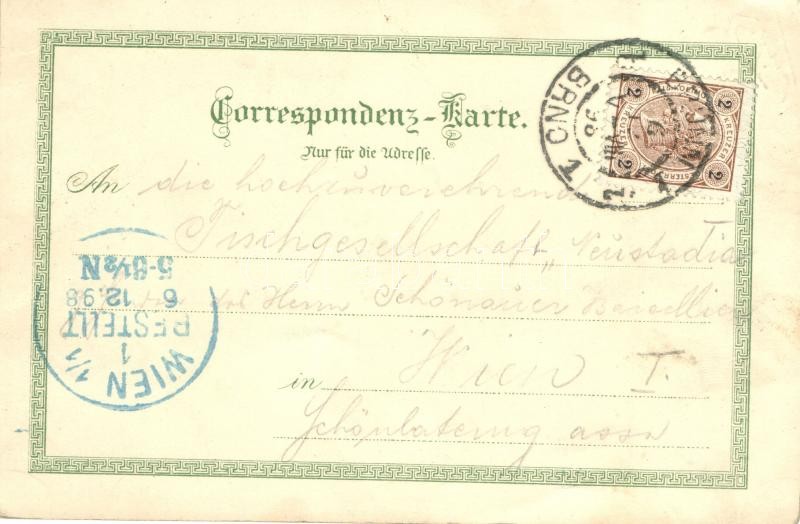 Correspondenz-Karte.
Nur für die Adresse.
An die hochzuverehrende
Tischgesellschaft „Neustadia
des Herrn Schönauer
in Wien I.
Schönlaterng asse
BRÜNN
BRNO
1
98
2 KREUZER 2
2 2
WIEN 1/1
1
BESTELLT
6 12.98
5-6½N